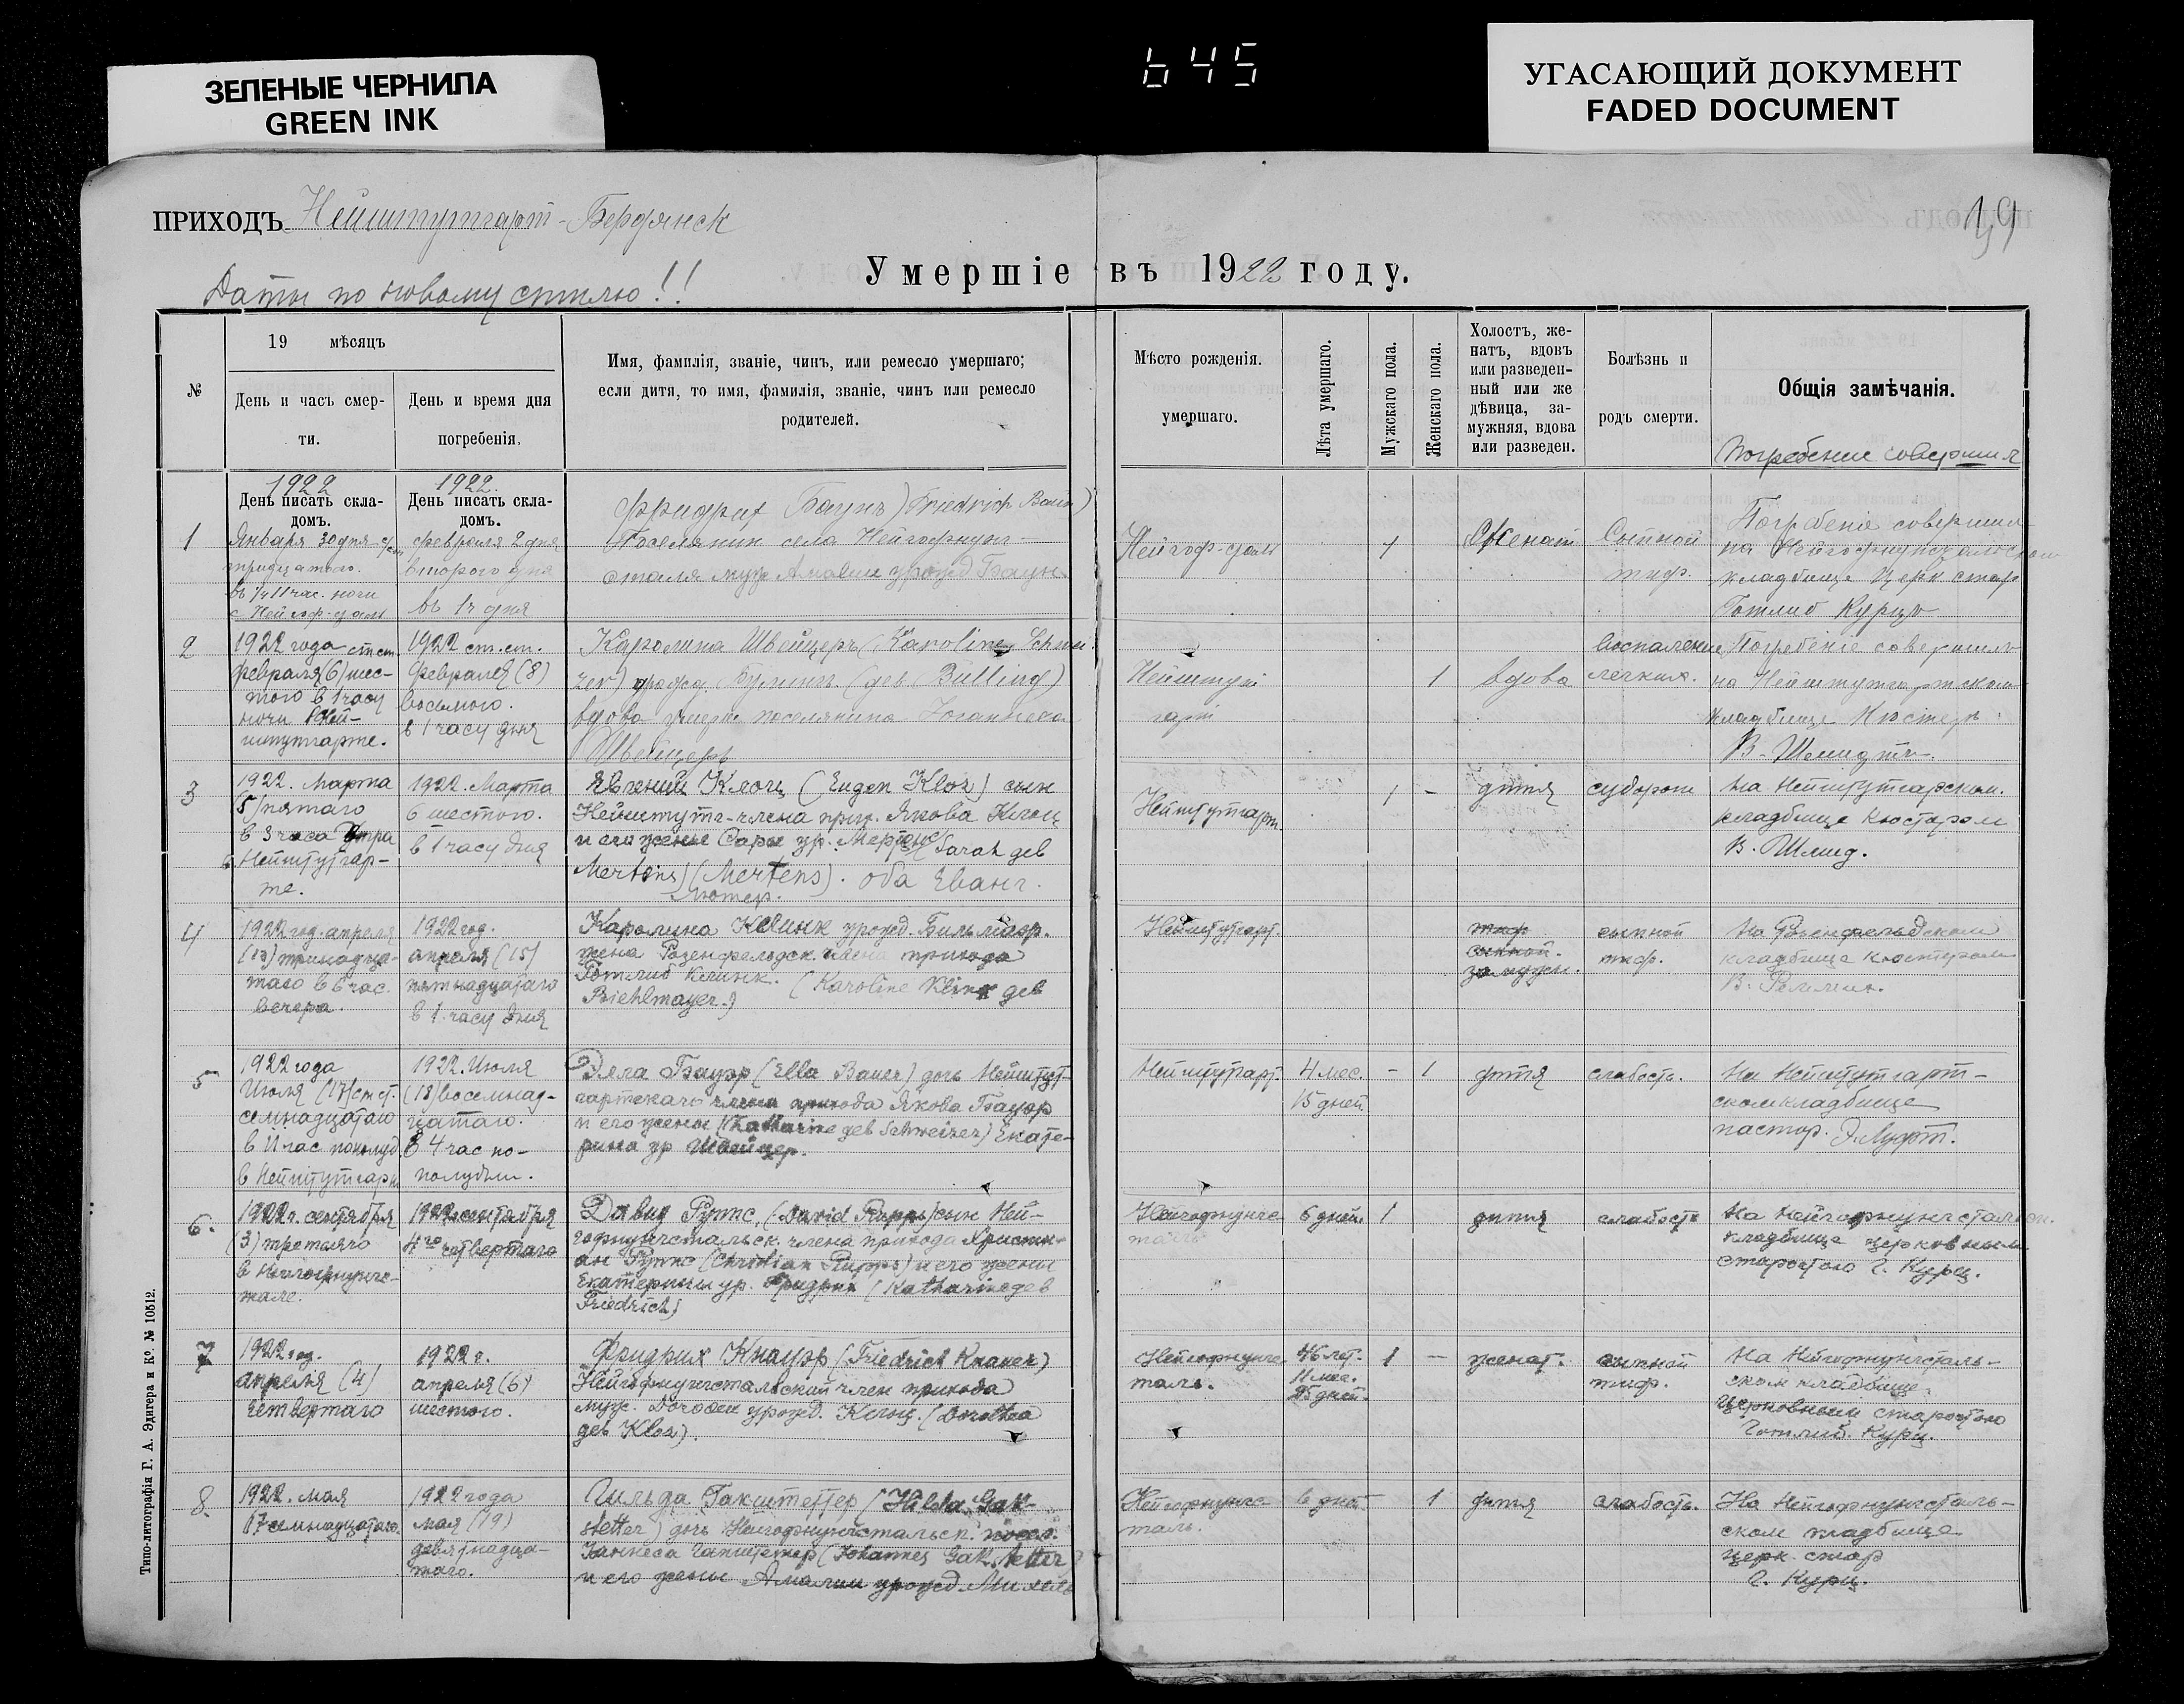 ЗЕЛЕНЫЕ ЧЕРНИЛА
GREEN INK
645
УГАСАЮЩИЙ ДОКУМЕНТ
FADED DOCUMENT
ПРИХОДЪ Нейштутгарт-Бердянск
Даты по новому стилю!!
Умершіе въ 1922 году.
№
19 мѣсяцъ
День и часъ смер-
ти.
День и время дня
погребенія.
Имя, фамилія, званіе, чинъ, или ремесло умершаго;
если дитя, то имя, фамилія, званіе, чинъ или ремесло
родителей.
Мѣсто рожденія.
умершаго.
Лѣта умершаго.
Мужскаго пола.
Женскаго пола.
Холостъ, же-
натъ, вдовъ
или разведен-
ный или же
дѣвица, за-
мужняя, вдова
или разведен.
Болѣзнь и
родъ смерти.
Общія замѣчанія.
Погребение совершил
1
1922
День писать скла-
домъ.
Января 30 дня
тридцатого.
в 1/4 11 час. ночи
1922.
День писать скла-
домъ.
февраля 2 дня
второго дня
въ 1 ч дня
Фридрих Баунъ) Friedrich Baun)
Поселянин села Нейгофнунг-
сталя муж Амалии урожд Баун.
Нейгоф-сталь
1
Женат
Сыпной
тиф.
Погребенiе совершил
на Нейгофнунгстальском
кладбище Церк стар
Готлиб Курцъ
2
1922 года ст ст
февраля (6) шес-
того в 1 часу
ночи в Ней-
штутгарте.
1922 ст. ст.
февраля (8)
восьмого.
в 1 часу дня
Каролина Швейцеръ (Karoline Schwei-
zer) урожд. Буллинг (geb Bulling)
вдова умерш. поселянина Иоганнеса
Швейцеръ
Нейштут
гарт
1
вдова
воспаление
легких.
Погребенiе совершилъ
на Нейштутгартском
кладбище Кюстеръ
В. Шмидтъ
3
1922. Марта
(5) пятаго
в 3 часа утра
в Нейштутгар-
те.
1922. Марта
6 шестого.
в 1 часу дня
Евгений Клоц (Eugen Kloz) сын
Нейштутг-члена прих. Якова Клоц
и его жены Сары ур. Мертенс (Sarah geb
Mertens) (Mertens). оба Еванг.
Лютер.
Нейштутгарт
1 -
дитя
судороги
На Нейштутгарском.
кладбище Кюстером
В. Шмид.
4
1922 год. апреля
(13) тринадца-
таго в 6 час.
вечера.
1922 год.
апреля (15)
пятнадцатаго
в 1. часу дня
Каролина Клинк урожд. Бильмаер.
жена Розенфельдск. члена прихода
Готлиб Клинк. (Karoline Klink geb
Biehlmayer.)
Нейштутгарт.
тиф
сыпной.
замужн.
сыпной
тиф.
На Розенфельдском
кладбище кюстером
5
1922 года
Июля (17) ст ст.
семнадцатаго
в 11 час пополуд
в Нейштутгарт
1922. Июля
(18) восемнад-
цатаго.
в 4 час по-
полудни.
Элла Бауэр (Ella Bauer) дочь Нейштут-
гартскаго члена прихода Якова Бауэр
и его жены (Katharine geb Schweizer) Екате-
рина ур Швейцер.
Нейштутгарт.
4 мес.
15 дней
- 1
дитя
слабость.
На Нейштутгарт-
ском кладбище
пастор.
6.
1922 г. сентября
(3) третьяго
в Нейгофнунгс-
тале.
1922 сентября
4го четвертаго
Давид Руппс, (David Rupps) сын Ней-
гофнунгстальск. члена прихода Христи-
ан Руппс (Christian Rupps) и его жены
Екатерины ур. Фридрих (Katharine geb
Friedrich)
Нейгофнунгс-
таль
6 дней.
1
дитя
слабость
На Нейгофнунгстальском.
кладбище церковным
старостою Г. Курц.
7
1922 год.
апреля (4)
четвертаго
1922 г.
апреля (6)
шестого.
Фридрих Кнауэр (Friedrich Knauer)
Нейгофнунгстальский член прихода
муж. Доротеи урожд. Клоц. (Dorothea
geb Kloz).
Нейгофнунгс-
таль.
46 лет.
11 мес.
25 дней.
1 -
женат.
сыпной
тиф.
На Нейгофнунгсталь-
ском кладбище.
церковным старостою
Готлиб. Курц.
8.
1922. мая
17 семнадцатаго.
1922 года
мая (19)
девятнадца-
таго.
Гильда Гакштеттер (Hilda Gak-
stetter) дочь Нейгофнунгстальск. посел.
Ганнеса Гакштетер (Johannes Gakstetter
и его жены Амалии урожд. Михель
Нейгофнунгс-
таль.
6 дней
1
дитя
слабость.
На Нейгофнунгсталь-
ском кладбище
церк. стар
Г. Курц.
Типо-литографія Г. А. Эдигера и Кº. № 10512.